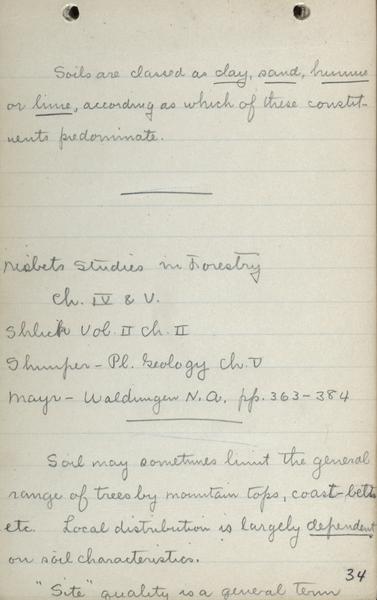 Soils are classed as clay, sand, humus
or lime, according as which of these constit-
uents predominate.
Nisbets Studies in Forestry
Ch. IV & V.
Shlich Vol. II Ch. II
Shimper - Pl. Geology Ch. V
Mayr - Waldungen N.A. pp. 363-384
Soil may sometimes limit the general
range of trees by mountain tops, coast-belts
etc. Local distribution is largely dependent
on soil characteristics.
34
"Site" quality is a general term